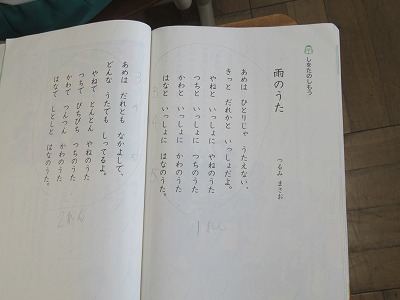 しをたのしもう
雨のうた
つるみ まさお
あめは ひとりじゃ うたえない、
きっと だれかと いっしょだよ。
やねと いっしょに やねのうた
つちと いっしょに つちのうた
かわと いっしょに かわのうた
はなと いっしょに はなのうた。
あめは だれとも なかよしで、
どんな うたでも しってるよ。
やねで とんとん やねのうた
つちで ぴちぴち つちのうた
かわで つんつん かわのうた
はなで しとしと はなのうた。
1れん
2れん